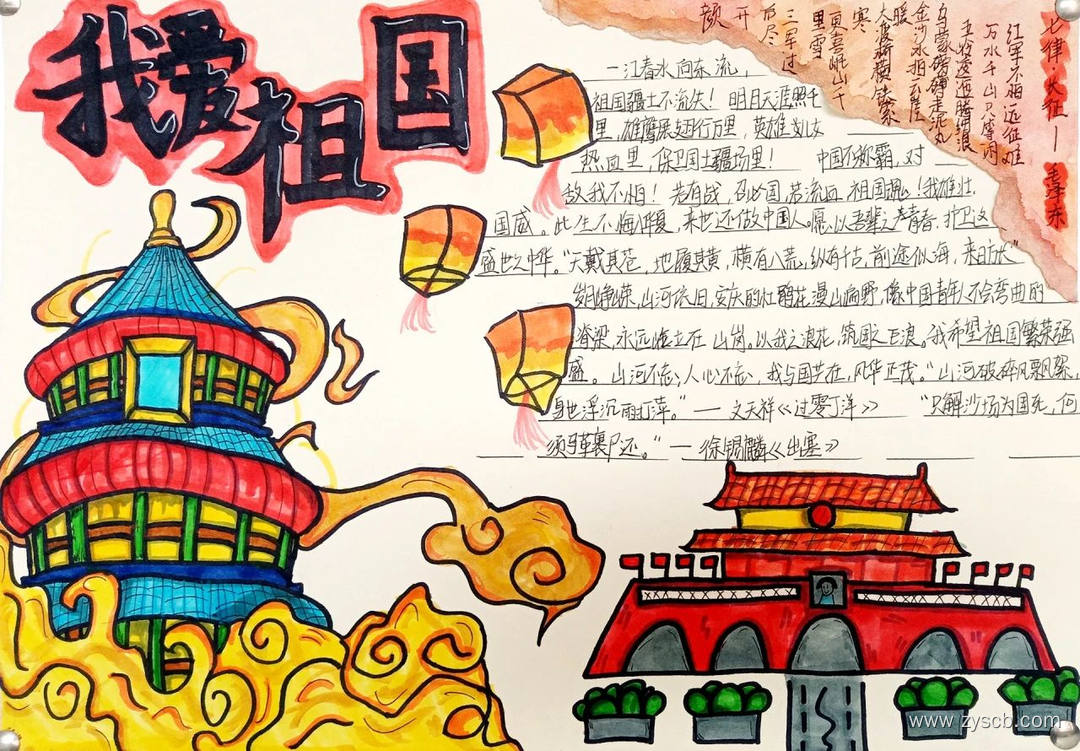 我爱祖国
七律·长征 — 毛泽东
红军不怕远征难
万水千山只等闲
五岭逶迤腾细浪
乌蒙磅礴走泥丸
金沙水拍云崖
暖
大渡桥横铁索
寒
更喜岷山千
里雪
三军过
后尽
开
颜
一江春水向东流，
祖国疆土不流失！ 明月天涯照千
里，雄鹰展翅行万里，英雄儿女
热血里，保卫国土疆场里！ 中国不称霸，对
敌我不怕！若有战，召必回，若流血，祖国魂！我雄壮，
国威。此生不悔入华夏，来世还做中国人。愿以吾辈之青春，护卫这
盛世之中华。“天戴其苍，地履其黄，横有八荒，纵有千古，前途似海，来日方长”
岁月峥嵘，山河依旧，安庆的杜鹃花漫山遍野，像中国青年人不会弯曲的
脊梁，永远临立在 山岗。以我之浪花，筑国之巨浪。我希望祖国繁荣强
盛。山河不忘，人心不忘，我与国共在，风华正茂。“山河破碎风飘絮，
身世浮沉雨打萍。”— 文天祥《过零丁洋》 “只解沙场为国死，何
须马革裹尸还。“— 徐锡麟《出塞》
www.zyscb.com